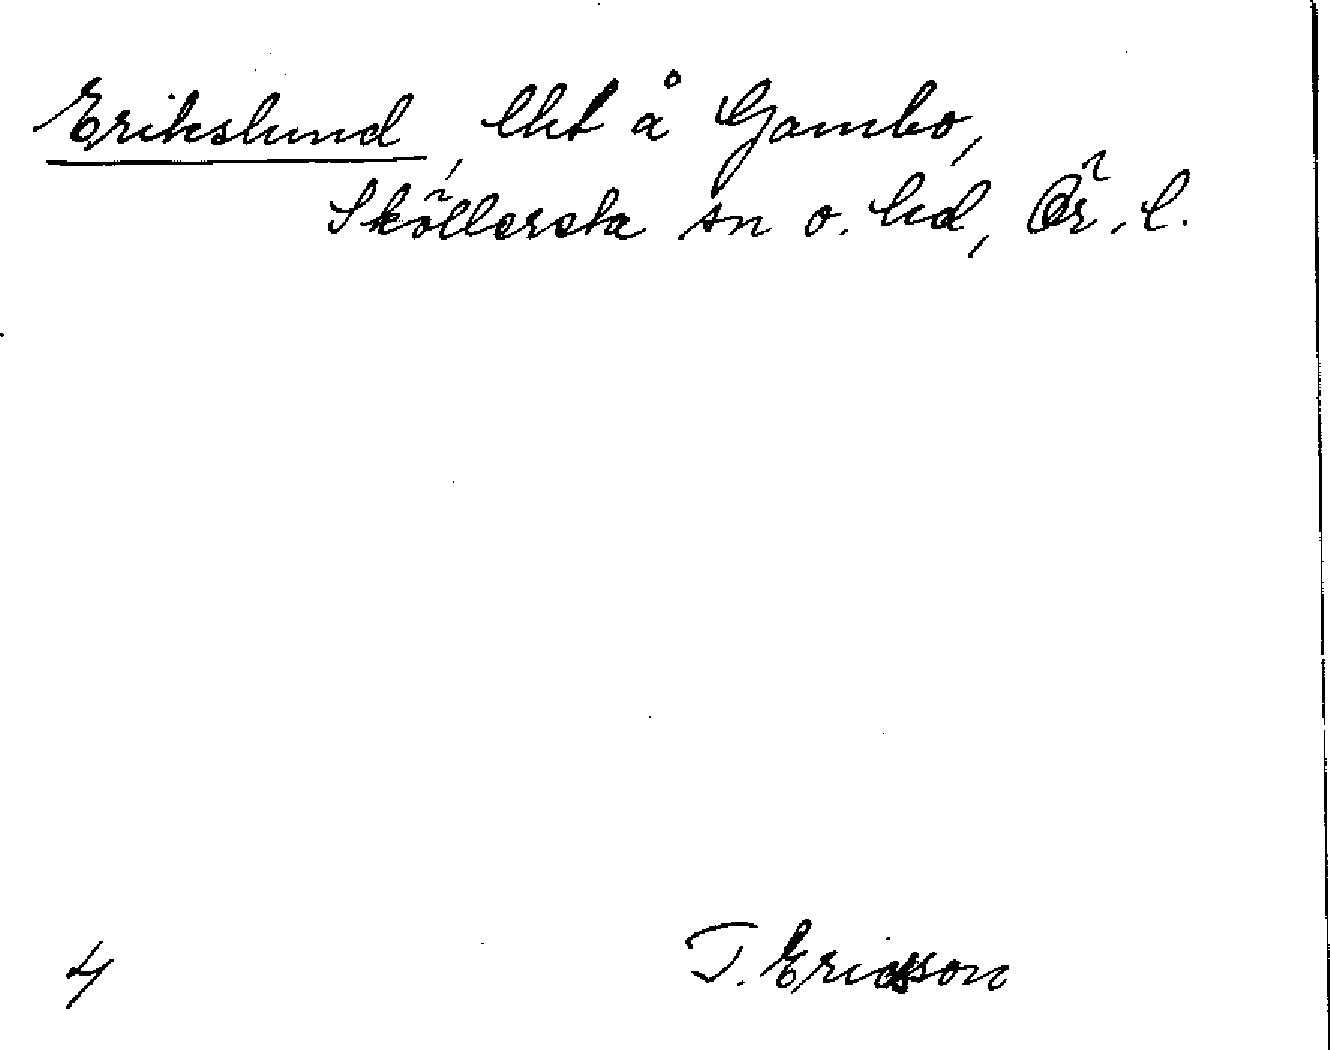 Erikslund, lht å Gambo,
Sköllersta sn o. hd, Ör. l.
4
T. Ericsson